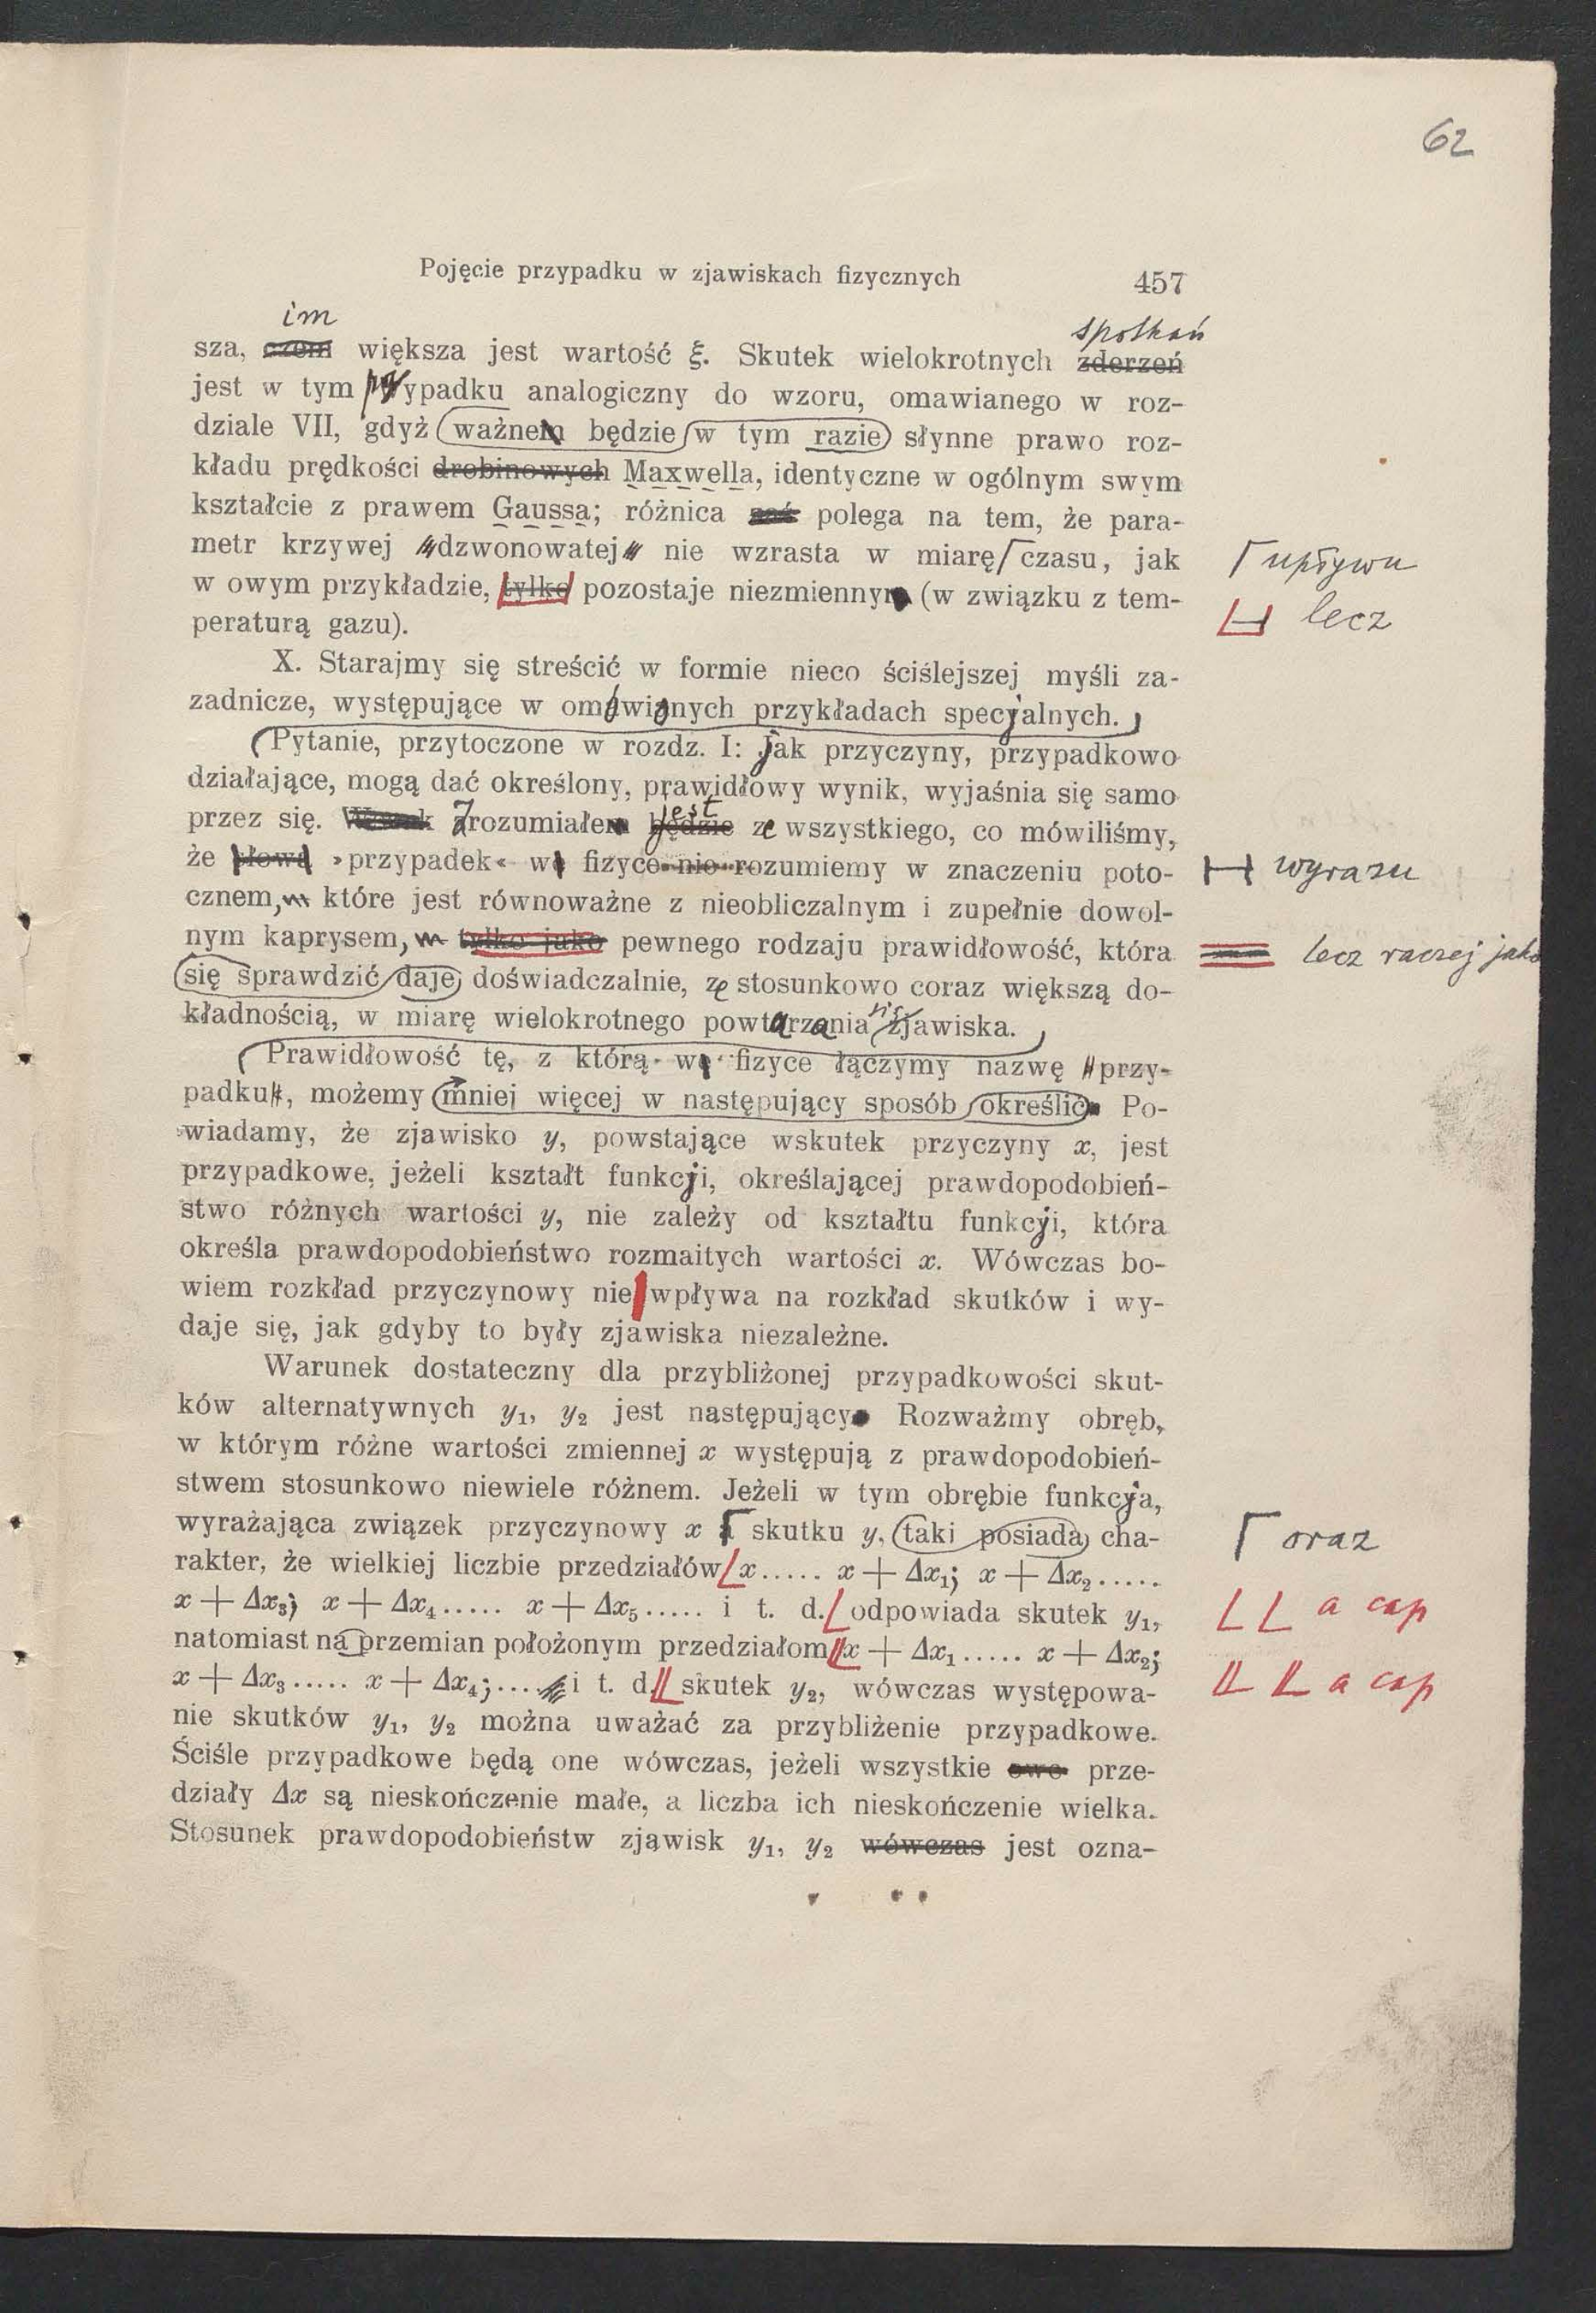 62
Pojęcie przypadku w zjawiskach fizycznych 457
im spotkań
sza, czem większa jest wartość ξ. Skutek wielokrotnych zderzeń
jest w tym przypadku analogiczny do wzoru, omawianego w roz-
dziale VII, gdyż ważnem będzie w tym razie słynne prawo roz-
kładu prędkości drobinowych Maxwella, identyczne w ogólnym swym
kształcie z prawem Gaussa; różnica zaś polega na tem, że para-
metr krzywej dzwonowatej nie wzrasta w miarę czasu, jak upływu
w owym przykładzie, tylko pozostaje niezmiennym (w związku z tem- lecz
peraturą gazu).
X. Starajmy się streścić w formie nieco ściślejszej myśli za-
zadnicze, występujące w omówionych przykładach specjalnych.
Pytanie, przytoczone w rozdz. I: jak przyczyny, przypadkowo
działające, mogą dać określony, prawidłowy wynik, wyjaśnia się samo
jest
przez się. Zrozumiałem będzie ze wszystkiego, co mówiliśmy,
że słowa »przypadek« w fizyce nie rozumiemy w znaczeniu poto- wyrazu
cznem, które jest równoważne z nieobliczalnym i zupełnie dowol-
nym kaprysem, tylko jako pewnego rodzaju prawidłowość, która lecz raczej jako
się sprawdzić daje doświadczalnie, ze stosunkowo coraz większą do-
kładnością, w miarę wielokrotnego powtarzania się zjawiska.
Prawidłowość tę, z którą we fizyce łączymy nazwę przy-
padku, możemy mniej więcej w następujący sposób określić. Po-
wiadamy, że zjawisko y, powstające wskutek przyczyny x, jest
przypadkowe, jeżeli kształt funkcji, określającej prawdopodobień-
stwo różnych wartości y, nie zależy od kształtu funkcji, która
określa prawdopodobieństwo rozmaitych wartości x. Wówczas bo-
wiem rozkład przyczynowy nie wpływa na rozkład skutków i wy-
daje się, jak gdyby to były zjawiska niezależne.
Warunek dostateczny dla przybliżonej przypadkowości skut-
ków alternatywnych y₁, y₂ jest następujący Rozważmy obręb,
w którym różne wartości zmiennej x występują z prawdopodobień-
stwem stosunkowo niewiele różnem. Jeżeli w tym obrębie funkcja,
wyrażająca związek przyczynowy x skutku y, taki posiada cha- oraz
rakter, że wielkiej liczbie przedziałów x..... x + Δx₁; x + Δx₂.....
x + Δx₃; x + Δx₄..... x + Δx₅..... i t. d. odpowiada skutek y₁, a cap
natomiast na przemian położonym przedziałom x + Δx₁..... x + Δx₂;
x + Δx₃..... x + Δx₄;.... i t. d. skutek y₂, wówczas występowa- a cap
nie skutków y₁, y₂ można uważać za przybliżenie przypadkowe.
Ściśle przypadkowe będą one wówczas, jeżeli wszystkie owe prze-
działy Δx są nieskończenie małe, a liczba ich nieskończenie wielka.
Stosunek prawdopodobieństw zjawisk y₁, y₂ wówczas jest ozna-